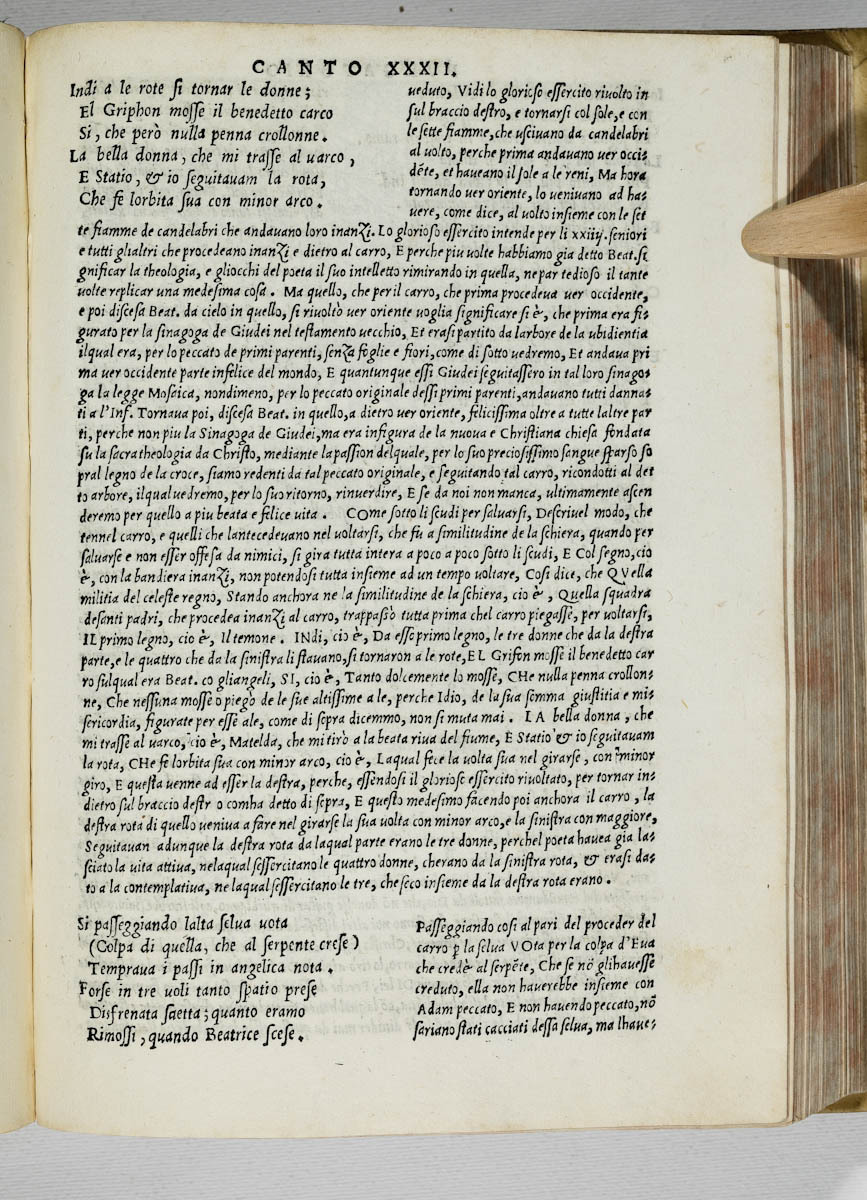 CANTO XXXII.
Indi a le rote si tornar le donne;
El Griphon mosse il benedetto carco
Si, che però nulla penna crollonne.
La bella donna, che mi trasse al uarco,
E Statio, & io seguitauam la rota,
Che fe lorbita sua con minor arco.
ueduto, Vidi lo glorioso essercito riuolto in
sul braccio destro, e tornarsi col sole, e con
le sette fiamme, che usciuano da candelabri
al uolto, perche prima andauano uer occi-
dēte, et haueano il sole a le reni, Ma hora
tornando uer oriente, lo ueniuano ad ha-
uere, come dice, al uolto insieme con le set
te fiamme de candelabri che andauano loro inanzi. Lo glorioso essercito intende per li xxiiij. seniori
e tutti glialtri che procedeano inanzi e dietro al carro, E perche piu uolte habbiamo gia detto Beat. si
gnificar la theologia, e gliocchi del poeta il suo intelletto rimirando in quella, ne par tedioso il tante
uolte replicar una medesima cosa. Ma quello, che per il carro, che prima procedeua uer occidente,
e poi discesa Beat. da cielo in quello, si riuoltò uer oriente uoglia significare si è, che prima era fi-
gurato per la sinagoga de Giudei nel testamento uecchio, Et erasi partito da larbore de la ubidientia
ilqual era, per lo peccato de primi parenti, senza foglie e fiori, come di sotto uedremo, Et andaua pri
ma uer occidente parte infelice del mondo, E quantunque essi Giudei seguitassero in tal loro sinago-
ga la legge Mosaica, nondimeno, per lo peccato originale dessi primi parenti, andauano tutti danna-
ti a l'Inf. Tornaua poi, discesa Beat. in quello, a dietro uer oriente, felicissima oltre a tutte laltre par
ti, perche non piu la Sinagoga de Giudei, ma era in figura de la nuoua e Christiana chiesa fondata
su la sacra theologia da Christo, mediante la passion delquale, per lo suo preciosissimo sangue sparso so
pral legno de la croce, siamo redenti da tal peccato originale, e seguitando tal carro, ricondotti al det
to arbore, ilqual uedremo, per lo suo ritorno, rinuerdire, E se da noi non manca, ultimamente ascen
deremo per quello a piu beata e felice uita. COme sotto li scudi per saluarsi, Descriuel modo, che
tennel carro, e quelli che lantecedeuano nel uoltarsi, che fu a similitudine de la schiera, quando per
saluarse e non esser offesa da nimici, si gira tutta intera a poco a poco sotto li scudi, E Col segno, cio
è, con la bandiera inanzi, non potendosi tutta insieme ad un tempo uoltare, Cosi dice, che QVella
militia del celeste regno, Stando anchora ne la similitudine de la schiera, cio è, Quella squadra
desanti padri, che procedea inanzi al carro, trappassò tutta prima chel carro piegasse, per uoltarsi,
IL primo legno, cio è, Il temone. INdi, cio è, Da esso primo legno, le tre donne che da la destra
parte, e le quattro che da la sinistra li stauano, si tornaron a le rote, EL Grifon mosse il benedetto car
ro sulqual era Beat. co gliangeli, SI, cio è, Tanto dolcemente lo mosse, CHe nulla penna crollon-
ne, Che nessuna mosse o piegò de le sue altissime a le, perche Idio, de la sua somma giustitia e mi-
sericordia, figurate per esse ale, come di sopra dicemmo, non si muta mai. LA bella donna, che
mi trasse al uarco, cio è, Matelda, che mi tirò a la beata riua del fiume, E Statio & io seguitauam
la rota, CHe fe lorbita sua con minor arco, cio è, Laqual fece la uolta sua nel girarse, con minor
giro, E questa uenne ad esser la destra, perche, essendosi il glorioso essercito riuoltato, per tornar in-
dietro sul braccio destr o comha detto di sopra, E questo medesimo facendo poi anchora il carro, la
destra rota di quello ueniua a fare nel girarse la sua uolta con minor arco, e la sinistra con maggiore,
Seguitauan adunque la destra rota da laqual parte erano le tre donne, perchel poeta hauea gia la-
sciato la uita attiua, nelaqual sessercitano le quattro donne, cherano da la sinistra rota, & erasi da-
to a la contemplatiua, ne laqual sessercitano le tre, che seco insieme da la destra rota erano.
Si passeggiando lalta selua uota
(Colpa di quella, che al serpente crese)
Tempraua i passi in angelica nota.
Forse in tre uoli tanto spatio prese
Disfrenata saetta; quanto eramo
Rimossi, quando Beatrice scese.
Passeggiando cosi al pari del proceder del
carro ꝑ la selua VOta per la colpa d'Eua
che credè al serpēte, Che se nō glihauesse
creduto, ella non hauerebbe insieme con
Adam peccato, E non hauendo peccato, nō
sariano stati cacciati dessa selua, ma lhaue-